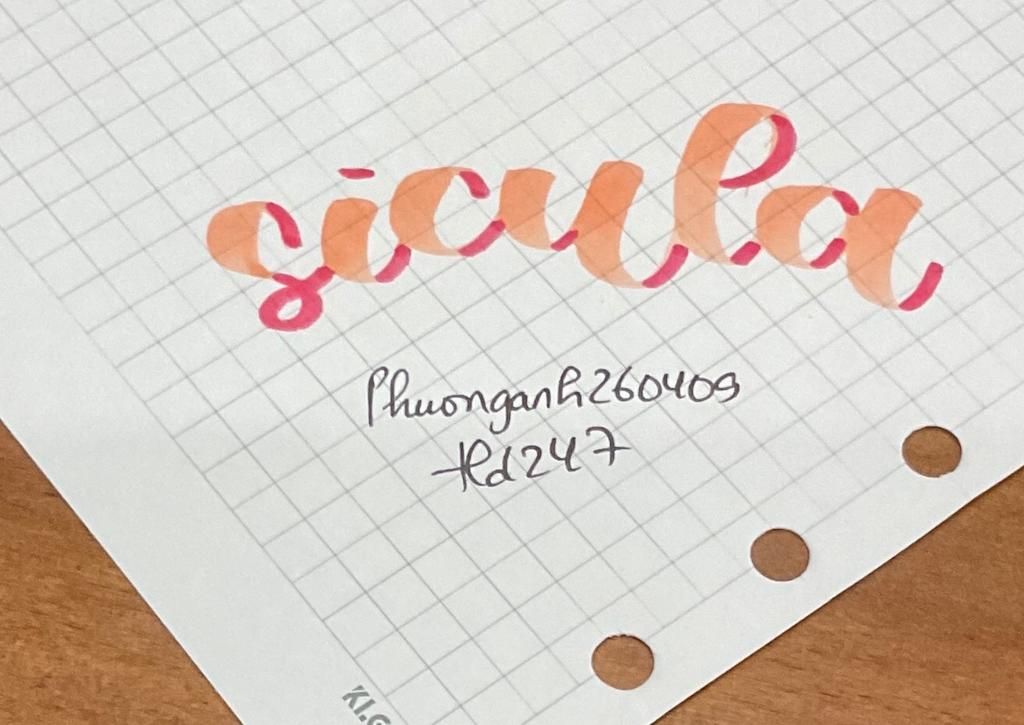 sicula
Phuonganh260409
tld247
KLO